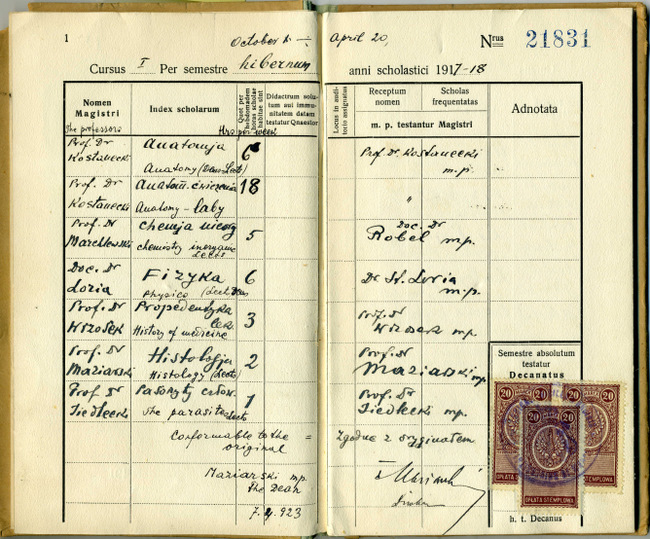 1
October 1 ÷ April 20,
Nrus 21831
Cursus I Per semestre hibernum anni scholastici 1917-18
Nomen Magistri
The professors
Index scholarum
Quot per hebdomadem horas scholae habitae sint
Hrs per week
Didactrum solutum sui immunitatem datam testatur Quaestor
Locus in auditorio assignatus
Receptum nomen
Scholas frequentatas
m. p. testantur Magistri
Adnotata
Prof. Dr Kostanecki
Anatomja
Anatomy
6
Prof. Dr. Kostanecki
m.p.
Prof. Dr Kostanecki
Anatom. ćwiczenia
Anatomy - laby
18
"
Prof. Dr Marchlewski
Chemja nieorg
Chemistry inorganic
Lects
5
Doc. Dr
Robel mp.
Doc. Dr Loria
Fizyka
Physics
6
Dr St. Loria
m.p.
Prof. Dr Wrzosek
Propedeutyka
lek
History of medicine
3
Prof. Dr
Wrzosek mp.
Prof. Dr Maziarski
Histologja
Histology (Lects)
2
Prof. Dr
Maziarski mp.
Prof Dr Siedlecki
Pasorzyty człow.
The parasites Lects
1
Prof. Dr
Siedlecki mp.
Semestre absolutum testatur
Decanatus
Conformable to the =
original
Zgodne z oryginałem
Maziarski mp.
the Dean
923
20 20
20 20
20 20
OPŁATA STEMPLOWA
OPŁATA STEMPLOWA
OPŁATA STEMPLOWA
h. t. Decanus